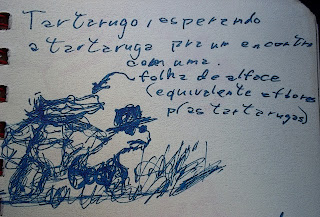 Tartarugo, esperando
a tartaruga pra um encontro
com uma
folha de alfoce
(equivalente a flores
p/ as tartarugas)